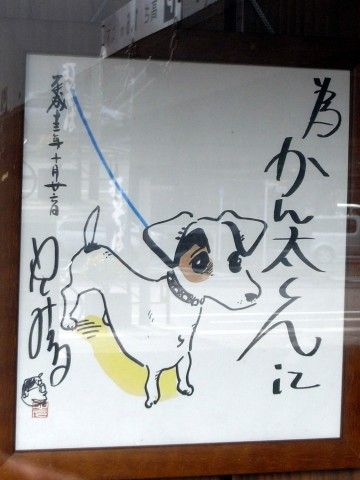 為
かん太くんに
平成十三年十月廿六日